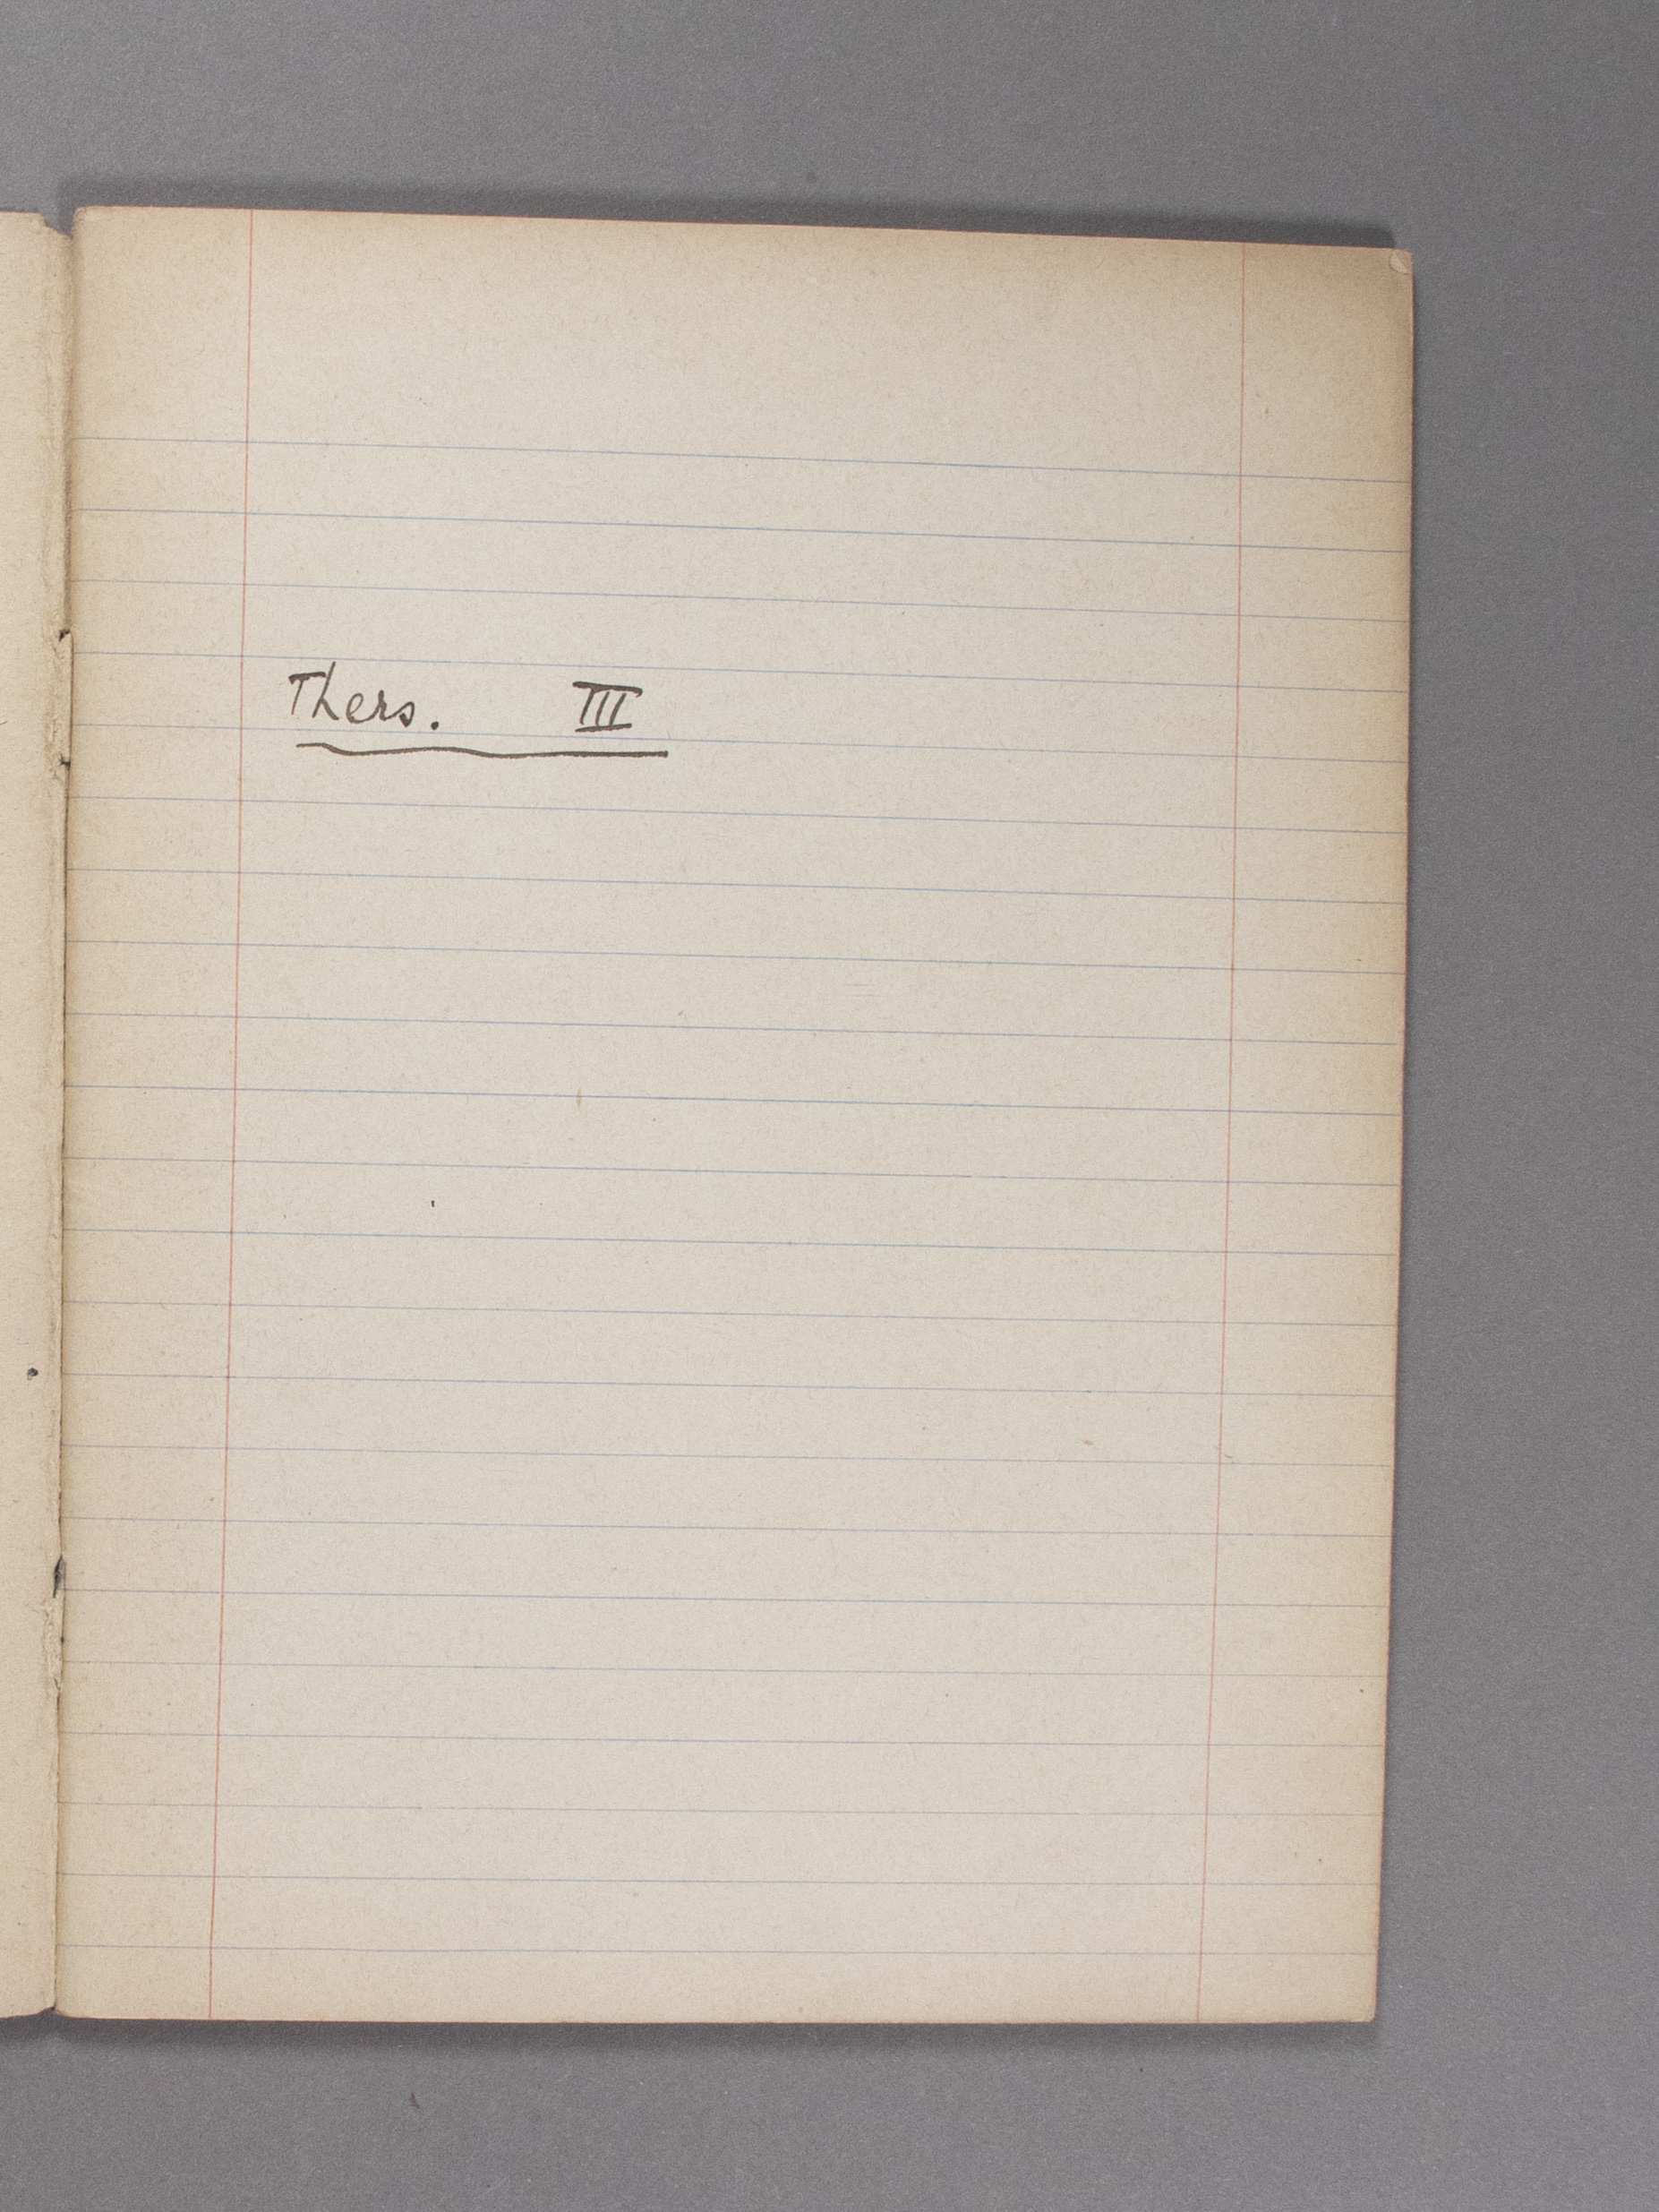 Thers. III